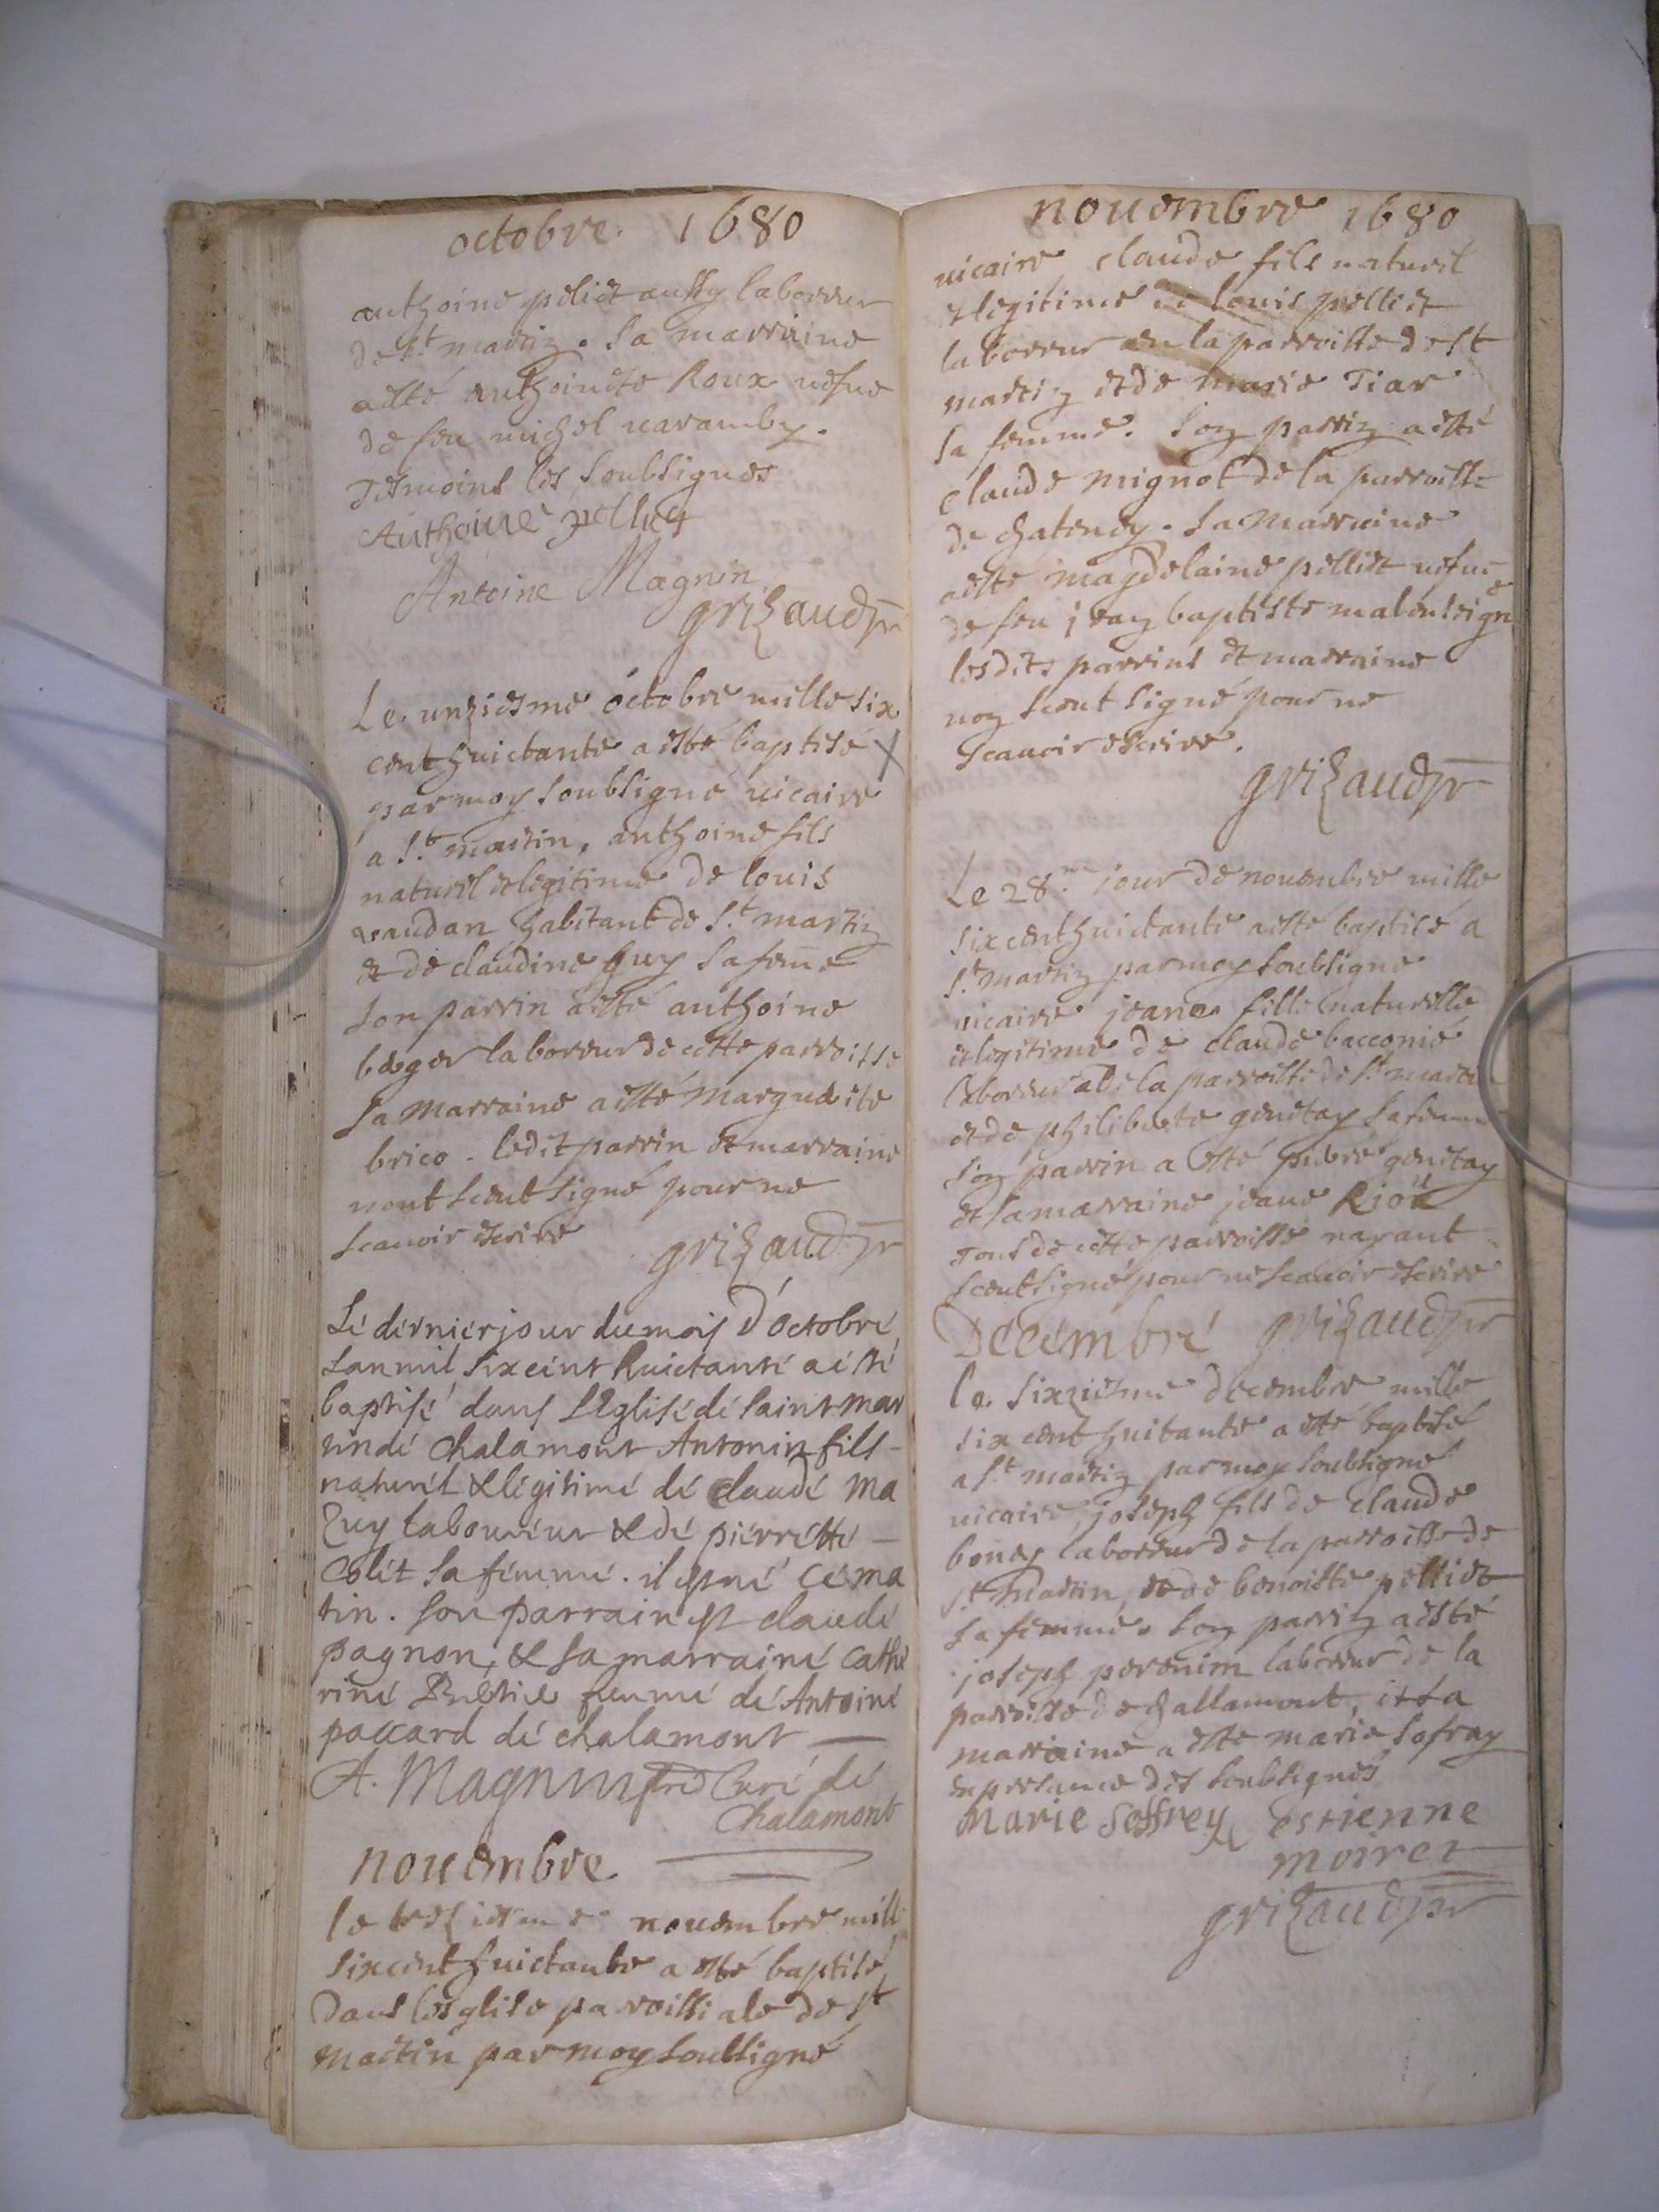 octobre. 1680
anthoine peliet aussy laboreur
de st martin. sa marraine
a esté anthoinete Roux uefue
de feu michel
tesmoins les soubsignes
Anthoine pelliet
Antoine Magnin
grizaud pr
Le unziesme octobre mille six
cent huictante a esté baptisé
par moy soubsigné uicaire
a st martin, anthoine fils
naturel et legitime de louis
uaudan habitant de st martin
et de claudine guy sa feme
son parrin a esté anthoine
laboreur de cette parroisse
sa marraine a esté marguerite
brico. ledit parrin et marraine
nont sceut signé pour ne
scauoir escrire
grizaud pr
Le dernier jour du mois d'octobre
lan mil six cent huictante a esté
baptisé dans l'Eglise de saint mar
tin de chalamont Antonin fils
naturel & legitime de claude ma
zuy laboureur & de pierrette
Colet sa femme. il est né ce ma
tin. son parrain est claude
pagnon, & sa marraine cathe
rine femme de Antoine
paccard de chalamont
A. Magnin Curé de
Chalamont
nouembre
le trezieme nouembre mill
six cent huictante a esté baptisé
dans lesglise parroissiale de st
martin par moy soubsigné
nouembre 1680
uicaire claude fils naturel
et legitime de louis pelliet
laboreur en la parroisse de st
martin et de marie Tiar
sa femme. son parrin a esté
claude mignot de la parroisse
de chatenay. sa marraine
a esté magdelaine pelliet uefue
de feu jean baptiste
lesdits parrins et marraine
non sceut signé pour ne
scauoir escrire.
grizaud pr
Le 28me jour de nouembre mille
six cent huictante a esté baptisé a
st martin par moy soubsigné
uicaire jeane fille naturelle
et legitime de claude bacconié
laboreur de la parroisse de st martin
et de philiberte genetay sa femme
son parrin a esté pierre genetay
et sa marraine jeane Riou
tous de cette parroisse nayant
sceut signé pour ne scauoir escrire
Decembre grizaud pr
le sixziesme decembre mille
six cent huitante a esté baptisé
a st martin par moy soubsigné
uicaire, joseph fils de claude
bouey laboreur de la parroisse de
st martin, et de benoiste pelliet
sa femme. son parrin a esté
joseph peronim laboreur de la
parroisse de challamont, et sa
marraine a esté marie sofray
en presance des soubsignés
Marie Soffrey estienne
moiret
grizaud pr